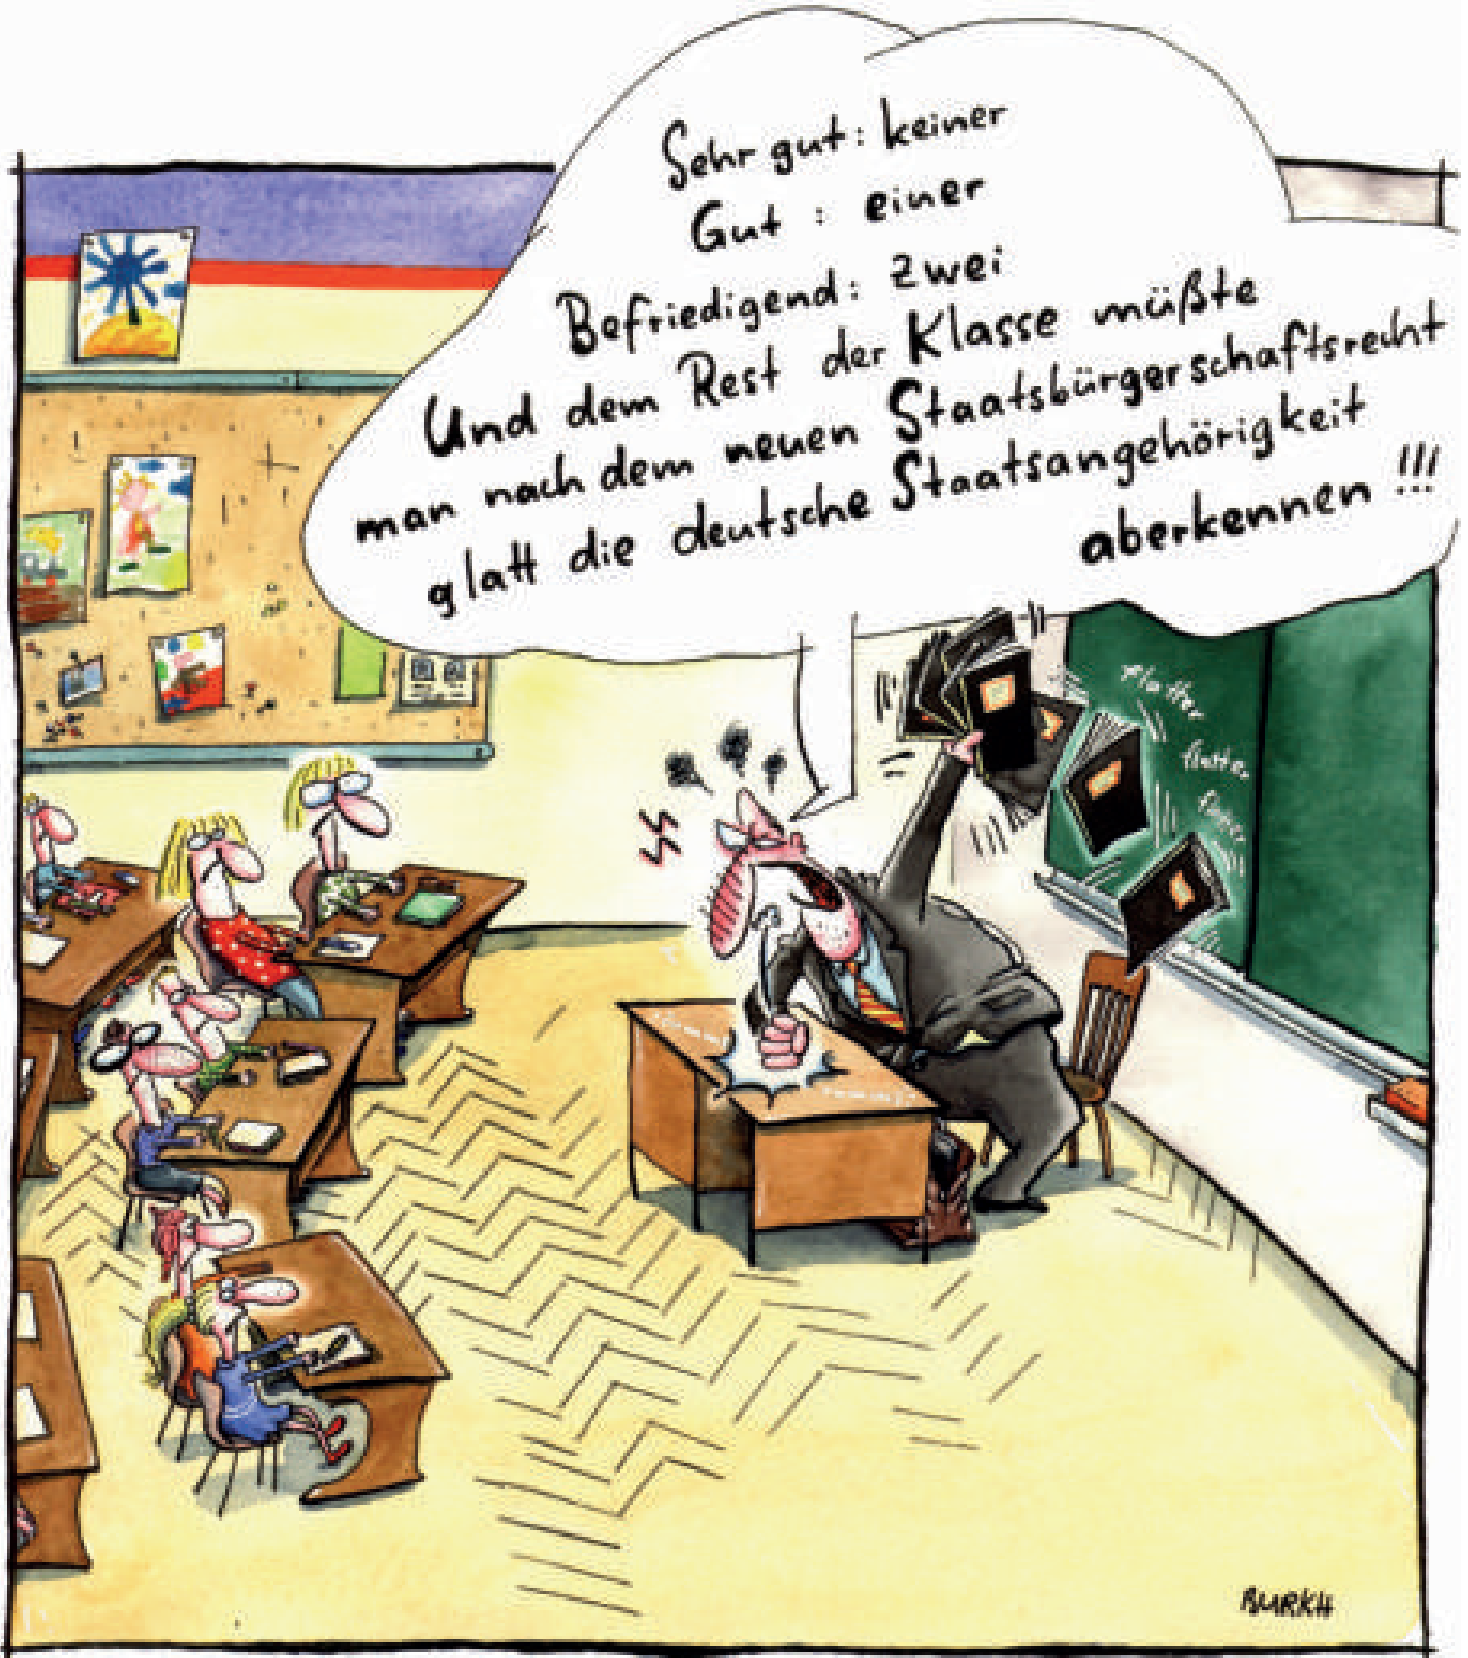 Sehr gut: keiner
Gut : einer
Befriedigend: zwei
Und dem Rest der Klasse müßte
man nach dem neuen Staatsbürgerschaftsrecht
glatt die deutsche Staatsangehörigkeit
aberkennen !!!
flatter
flatter
flatter
BURKH